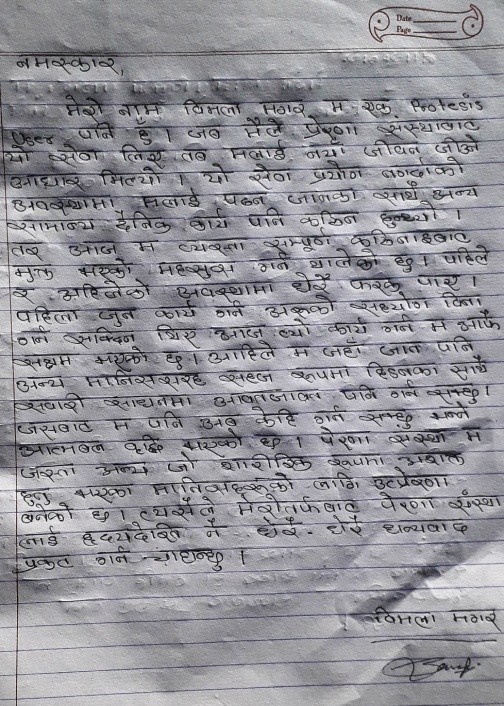 Date
Page
नमस्कार,
मेरो नाम विमला मगर म एक Protesis
User पनि हुँ । जब मैले प्रेरणा संस्थाबाट
यो सेवा लिए तब मलाई नयाँ जीवन जीउने
आधार मिल्यो । यो सेवा प्रयोग नगर्दाको
अवस्थामा मलाई पढन जानका साथै अन्य
सामान्य दैनिक कार्य पनि कठिन हुन्थ्यो ।
तर आज म त्यस्ता सम्पूर्ण कठिनाइबाट
मुक्त भएको महसुस गर्न थालेको छु । पहिले
र अहिलेको अवस्थामा धेरै फरक पाए ।
पहिला जुन कार्य गर्न अरुको सहयोग विना
गर्न सक्दिन थिए आज त्यो कार्य गर्न म आफै
सक्षम भएको छु । अहिले म जहाँ जान पनि
अन्य मानिससरह सहज रुपमा हिडनका साथै
सवारी साधनमा आवतजावत पनि गर्न सक्छु ।
जसबाट म पनि अब केहि गर्न सक्छु भन्ने
आत्मबल वृद्धि भएको छ । प्रेरणा संस्था म
जस्ता अन्य जो शारीरिक रूपमा अशक्त
भएका मानिसहरुको लागि उत्प्रेरणा
बनेको छ । त्यसैले मेरोतर्फबाट प्रेरणा संस्था
लाई हृदयदेखि नै धेरै-धेरै धन्यवाद
प्रकट गर्न चाहन्छु ।
विमला मगर